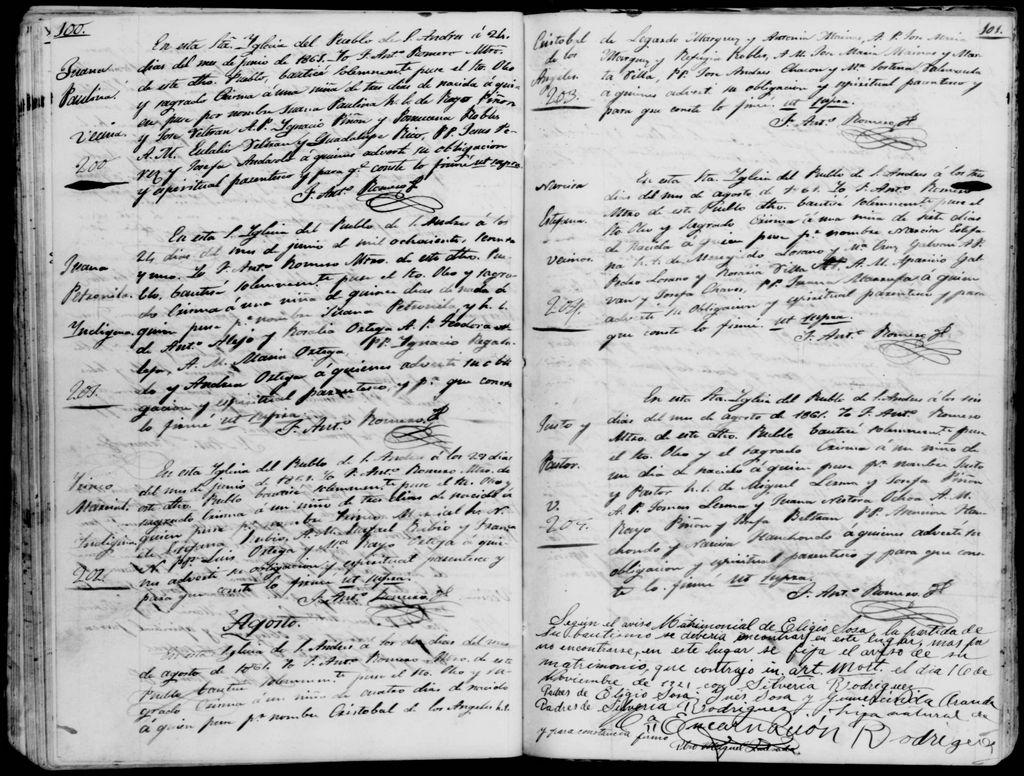 100.
Juana
Paulina
Vecina
200
En esta Sta. Yglecia del Pueblo de S. Andres á 24
dias del mes de junio de 1861. Yo F. Anto. Romero Mtro.
de este dho. Pueblo, bautisé solemnemente puse el Sto. Oleo
y sagrado Crisma á una niña de tres dias de nacida á quien
puse por nombre Juana Paulina h. l. de Rayo Piñon
y José Beltran A. P. Ygnacio Piñon y Robles
A. M. Eulalio Beltran y Guadalupe Rico, PP. Jesus
y Josefa á quienes adverti su obligacion
y espiritual parentesco y para qe. conste lo firmé ut supra
F. Anto. Romero
Juana
Petronila.
Yndigena.
201.
En esta S. Yglecia del Pueblo de S. Andres á los
24 dias del mes de junio de mil ochociento, sesenta
y uno. Yo F. Anto. Romero Mtro. de este dho. Pueblo,
bautisé solemnemente puse el Sto. Oleo y sagrado
Crisma á una niña de quince dias de nacida á
quien puse pr. nombre Juana Petronila, y h. l.
de Anto. Alejo y Rosalia Ortega A. P. Teodora
Alejo, A. M. Maria Ortega, PP. Ygnacio
y Andrea Ortega á quienes adverti su obligacion
y espiritual parentesco, y pa. que conste
lo firmé ut supra
F. Anto. Romero
Marcial
Yndigena
202.
En esta Yglecia del Pueblo de S. Andres á los 29 dias
del mes de junio de 1861. Yo F. Anto. Romero Mtro. de
este dho. Pueblo bautisé solemnemente puse el Sto. Oleo y
sagrado Crisma á un niño de tres dias de nacido á
quien puse por nombre Marcial h. N.
de Estefana Rubio, A. M. Rafael Rubio y
N. PP. Luis Ortega y Rayo Ortega á quienes
adverti su obligacion y espiritual parentesco y
para que conste lo firmé ut supra.
F. Anto. Romero
Agosto.
En esta Yglecia de S. Andres á los dos dias del mes
de agosto de 1861. Yo F. Anto. Romero Mtro. de este
Pueblo bautisé solemnemente puse el Sto. Oleo y sagrado
Crisma á un niño de cuatro dias de nacido
á quien puse pr. nombre Cristobal de los Angeles h. l.
101.
Cristobal
de los
Angeles.
203.
de Legardo Marquez y Antonia Mairnes, A. P. José Maria
Marquez y Refugia Robles, A. M. José Maria Mairnes y
Villa, PP. José Andres Chacon y Ma. Valenzuela
á quienes adverti su obligacion y espiritual parentesco y
para que conste lo firmé ut supra.
F. Anto. Romero
Narcisa
Estefana
Vecinos
204.
En esta Sta. Yglecia del Pueblo de S. Andres á los tres
dias del mes de agosto de 1861. Yo F. Anto. Romero
Mtro. de este Pueblo dho. bautisé solemnemente puse el
Sto. Oleo y Sagrado Crisma á una niña de siete dias
de Nacida á quien puse pr. nombre Narcisa Estefana
h. l. de Meregildo Lozano y Ma. Cruz Galvan A. P.
Pedro Lozano y Rosaria Villa A. M. Aparicio Galvan
y Josefa Chaves, PP. Juana á quien
adverti su obligacion y espiritual parentesco y para
que conste lo firmé ut supra.
F. Anto. Romero
Justo y
Pastor.
V.
204.
En esta Sta. Yglecia del Pueblo de S. Andres á los seis
dias del mes de agosto de 1861. Yo F. Anto. Romero
Mtro. de este dho. Pueblo bautisé solemnemente puse
el Sto. Oleo y el sagrado Crisma á un niño de
un dia de nacido á quien puse pr. nombre Justo
y Pastor h. l. de Miguel Lerma y Josefa Piñon
A. P. Tomas Lerma y Juana Nestora Ochoa A. M.
Rayo Piñon y Josefa Beltran PP.
y Narcisa á quienes adverti su
obligacion y espiritual parentesco y para que conste
lo firmé ut supra.
F. Anto. Romero
Según el aviso Matrimonial de Eligio Sosa, la partida de
su bautismo se deberia encontrar en este lugar, mas por
no encontrarse, en este lugar se fija el aviso de su
matrimonio, que contrajo in art. mort. el dia 16 de
Noviembre de 1921 con Silveria Rodriguez
Padres de Eligio Sosa: Inés Sosa y Aranda
Padres de Silveria Rodriguez: hija natural de
Encarnación Rodriguez
y para constancia firmo